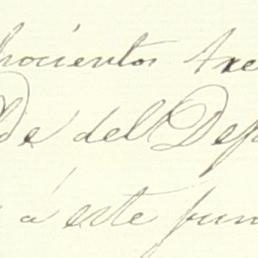 hocientos tre
lde del Dep
á este fun